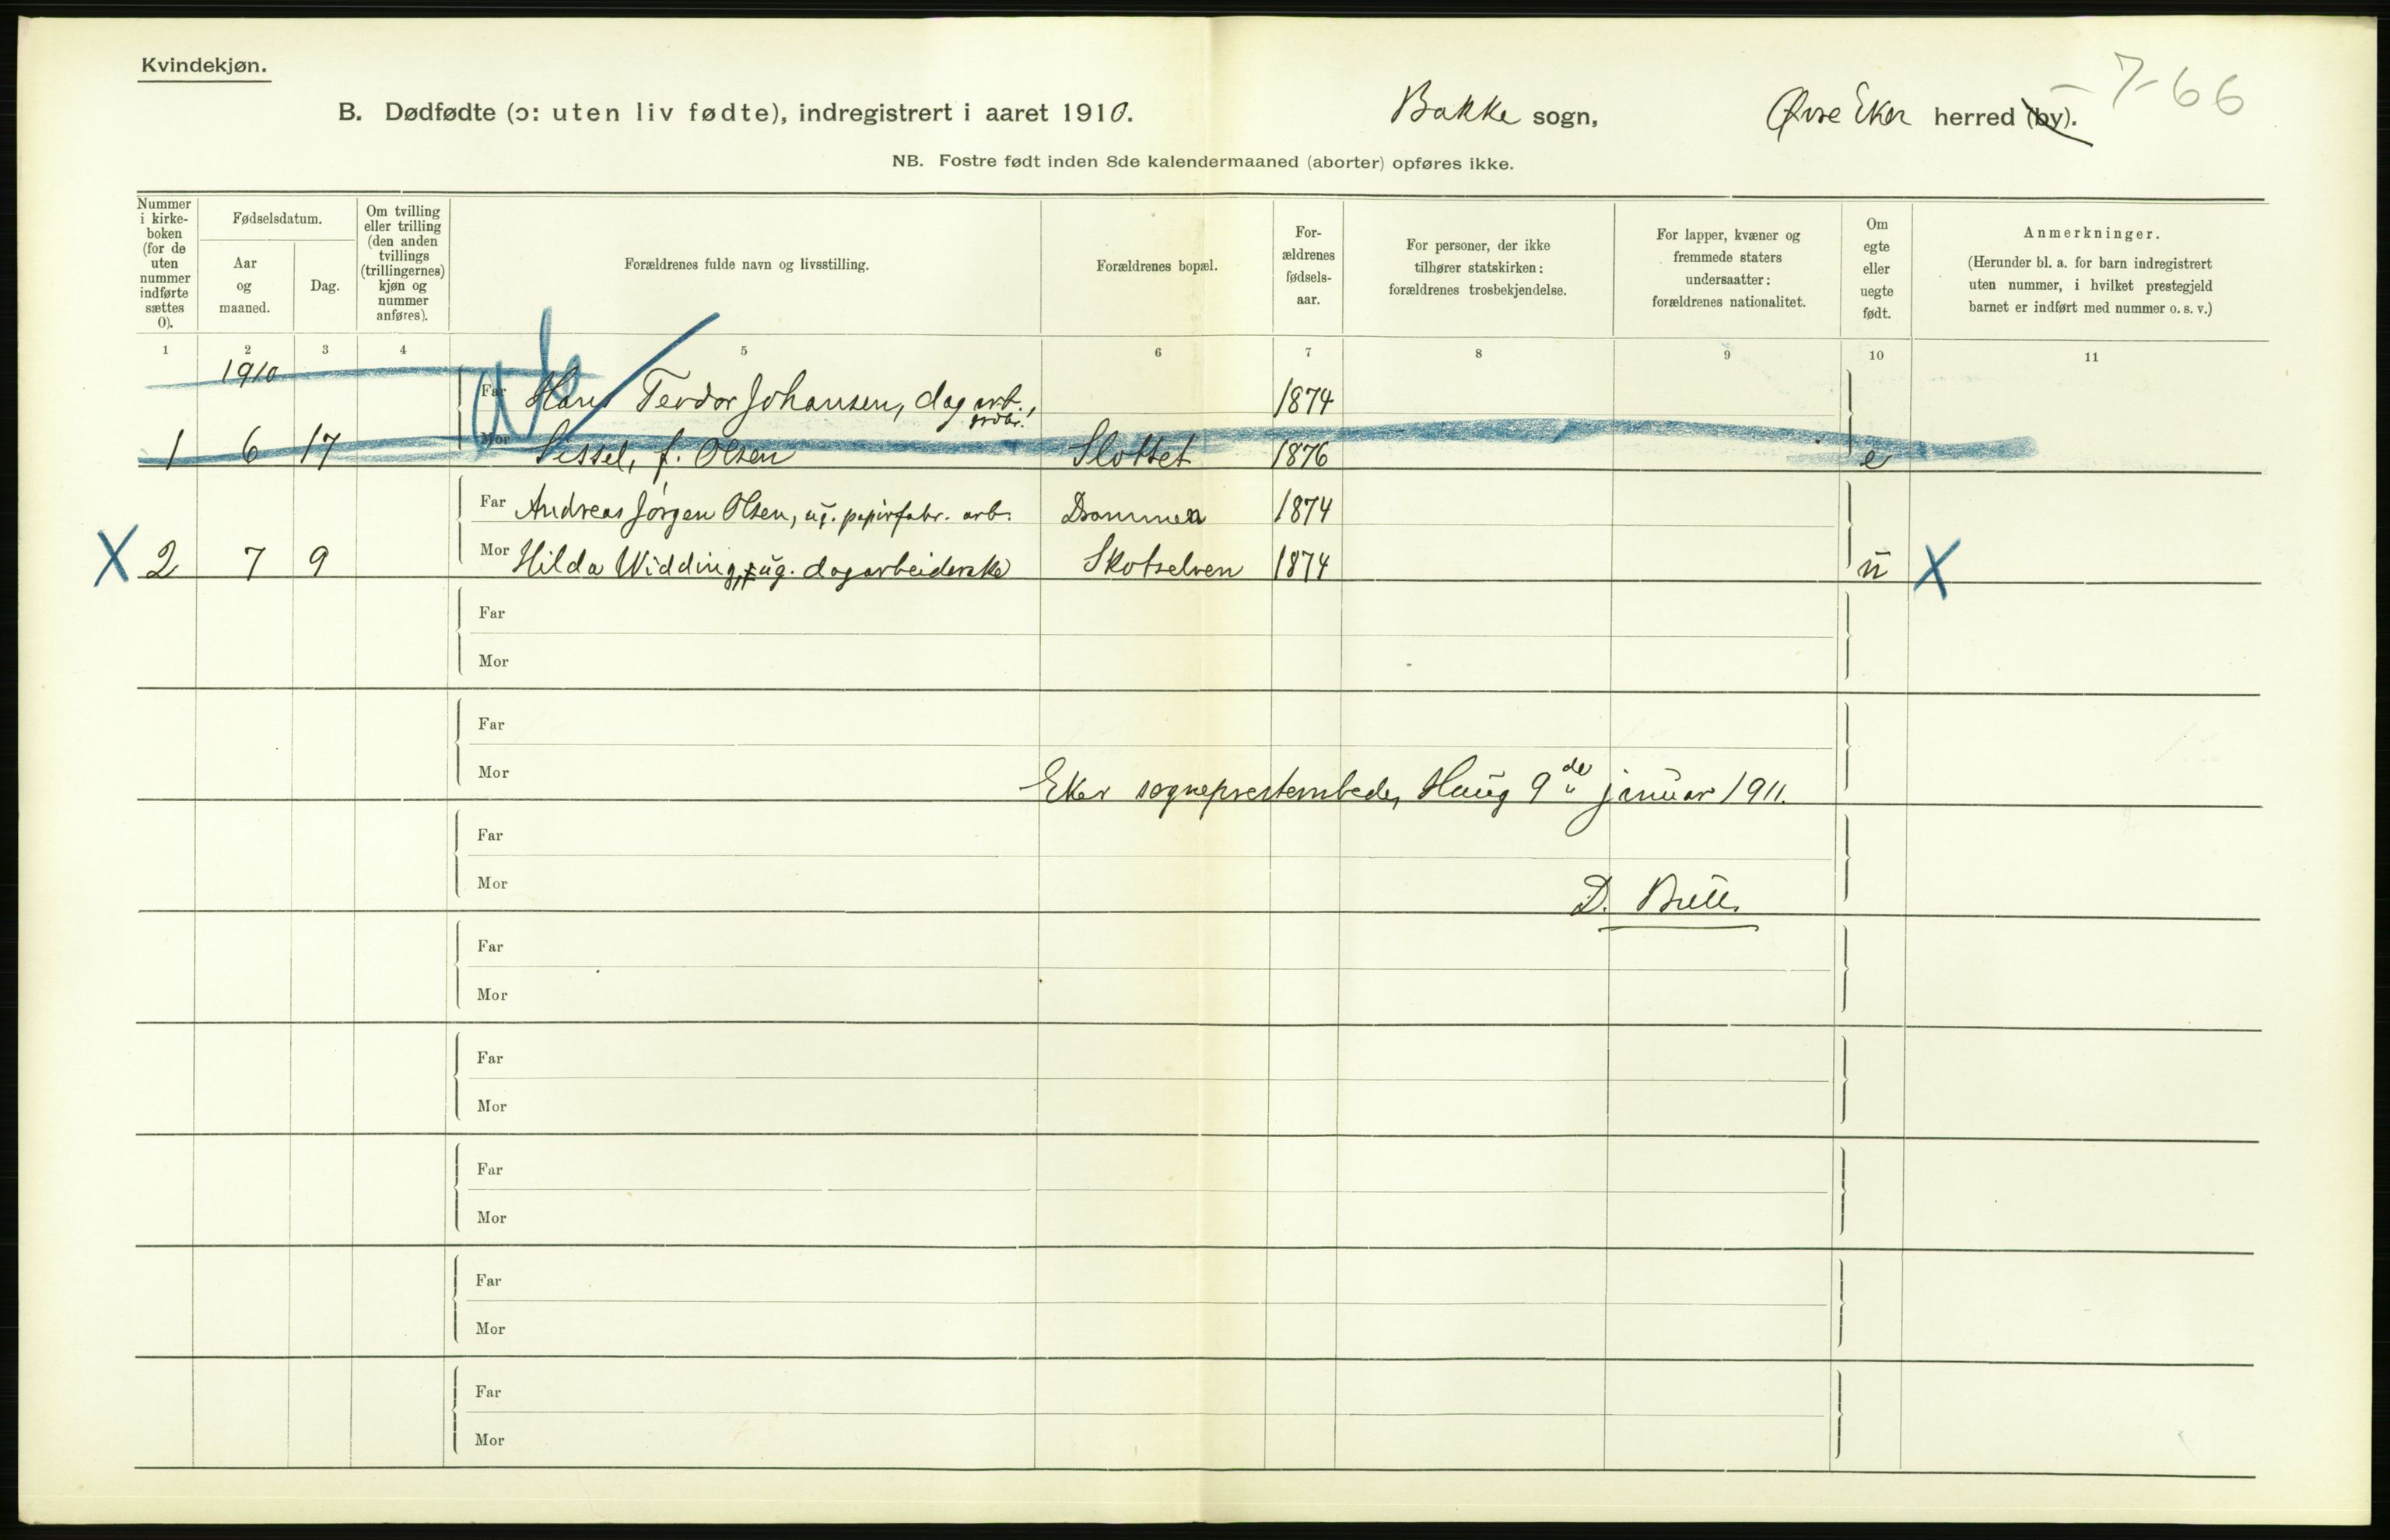 Kvindekjøn.
-7-66
B. Dødfødte (ɔ: uten liv fødte), indregistrert i aaret 1910. Bakke sogn, Øvre Eker herred (by).
NB. Fostre født inden 8de kalendermaaned (aborter) opføres ikke.
Nummer i kirke-boken (for de uten nummer indførte sættes 0).
Fødselsdatum.
Aar og maaned.
Dag.
Om tvilling eller trilling (den anden tvillings (trillingernes) kjøn og nummer anføres).
Forældrenes fulde navn og livsstilling.
Forældrenes bopæl.
For-ældrenes fødsels-aar.
For personer, der ikke tilhører statskirken: forældrenes trosbekjendelse.
For lapper, kvæner og fremmede staters undersaatter: forældrenes nationalitet.
Om egte eller uegte født.
Anmerkninger.
(Herunder bl. a. for barn indregistrert uten nummer, i hvilket prestegjeld barnet er indført med nummer o. s. v.)
1 2 3 4 5 6 7 8 9 10 11
1910
Far Hans Teodor Johansen, dagarb., 1874
1 6 17 Mor Sissel, f. Olsen Slottet 1876 e
Far Andreas Jørgen Olsen, ug. papirfabr. arb. Drammen 1874
X 2 7 9 Mor Hilda Widding, ug. dagarbeiderske Skotselven 1874 u X
Far
Mor
Far
Mor
Eker sogneprestembede, Haug 9de januar 1911.
Far
Mor
D. Bull.
Far
Mor
Far
Mor
Far
Mor
Far
Mor
Far
Mor